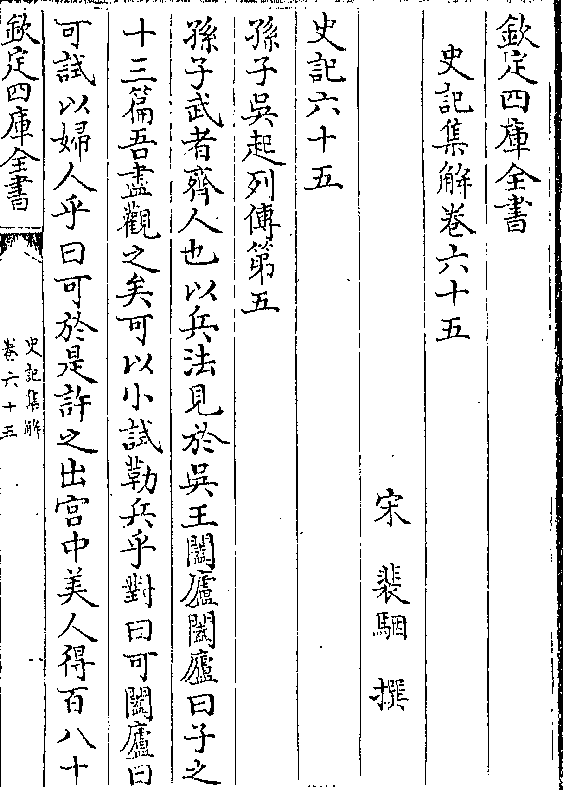 欽定四庫全書
史記集解卷六十五
宋 裴駰 撰
史記六十五
孫子吳起列傳第五
孫子武者齊人也以兵法見於吳王闔廬闔廬曰子之
十三篇吾盡觀之矣可以小試勒兵乎對曰可闔廬曰
可試以婦人乎曰可於是許之出宮中美人得百八十
欽定四庫全書
史記集解
卷六十五